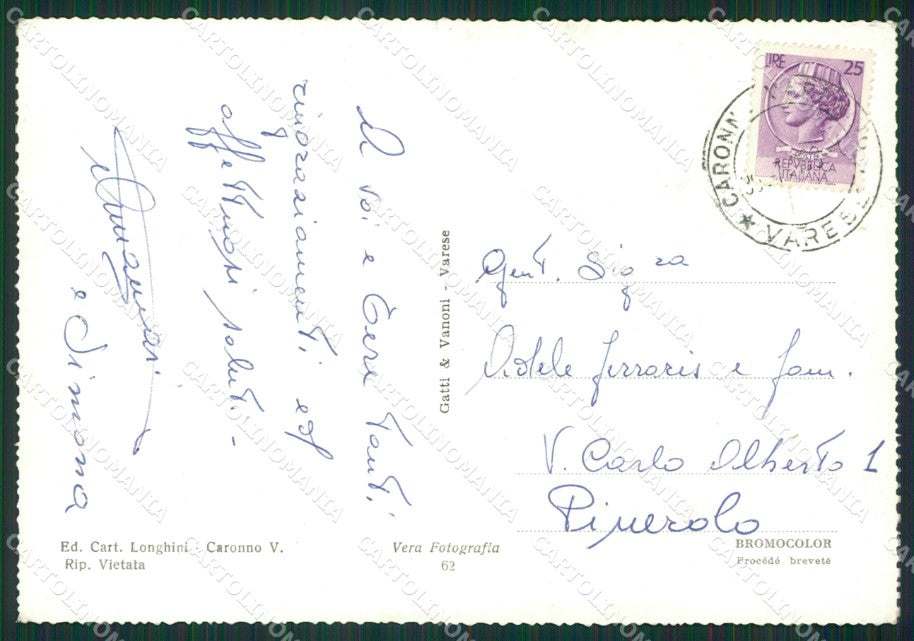 A voi e Tere tanti
ringraziamenti ed
affettuosi saluti -
e Simona
Gatti & Vanoni - Varese
LIRE 25
REPVBBLICA
ITALIANA
CARONN
VARESE
Gent. Sig ra
Adele Ferraris e fam.
V. Carlo Alberto 1
Pinerolo
Ed. Cart. Longhini - Caronno V.
Rip. Vietata
Vera Fotografia
62
BROMOCOLOR
Procédé breveté
CARTOLINOMANIA